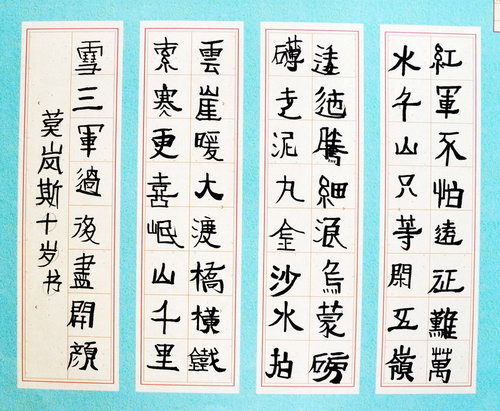 紅軍不怕遠征難萬
水千山只等閑五嶺
逶迤騰細浪烏蒙磅
礴走泥丸金沙水拍
雲崖暖大渡橋橫鐵
索寒更喜岷山千里
雪三軍過後盡開顏
莫岚斯十岁书